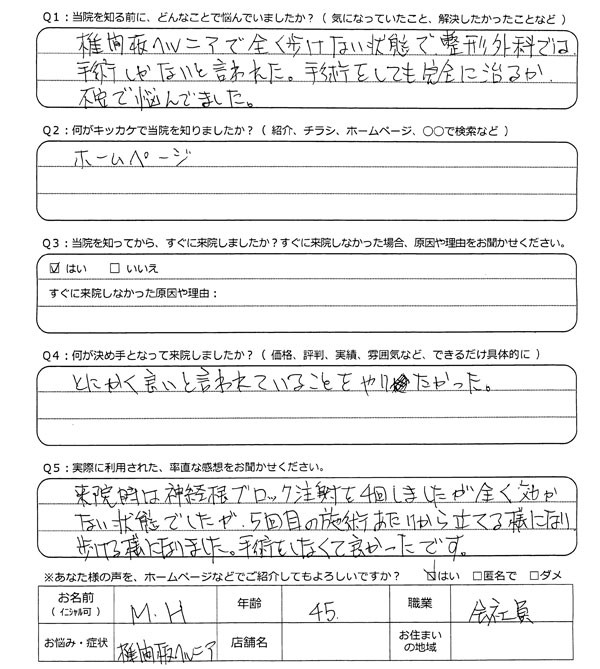 Q1：当院を知る前に、どんなことで悩んでいましたか？（ 気になっていたこと、解決したかったことなど ）
椎間板ヘルニアで全く歩けない状態で整形外科では、
手術しかないと言われた。手術をしても完全に治るか
不安で悩んでました。
Q2：何がキッカケで当院を知りましたか？（ 紹介、チラシ、ホームページ、○○で検索など ）
ホームページ
Q3：当院を知ってから、すぐに来院しましたか？すぐに来院しなかった場合、原因や理由をお聞かせください。
☑ はい □ いいえ
すぐに来院しなかった原因や理由：
Q4：何が決め手となって来院しましたか？（ 価格、評判、実績、雰囲気など、できるだけ具体的に ）
とにかく良いと言われていることをやりたかった。
Q5：実際に利用された、率直な感想をお聞かせください。
来院時は神経根ブロック注射を4回しましたが全く効か
ない状態でしたが、5回目の施術あたりから立てる様になり
歩ける様になりました。手術をしなくて良かったです。
※あなた様の声を、ホームページなどでご紹介してもよろしいですか？ ☑はい □匿名で □ダメ
お名前（ イニシャル可 ） M.H 年齢 45. 職業 会社員
お悩み・症状 椎間板ヘルニア 店舗名 お住まいの地域